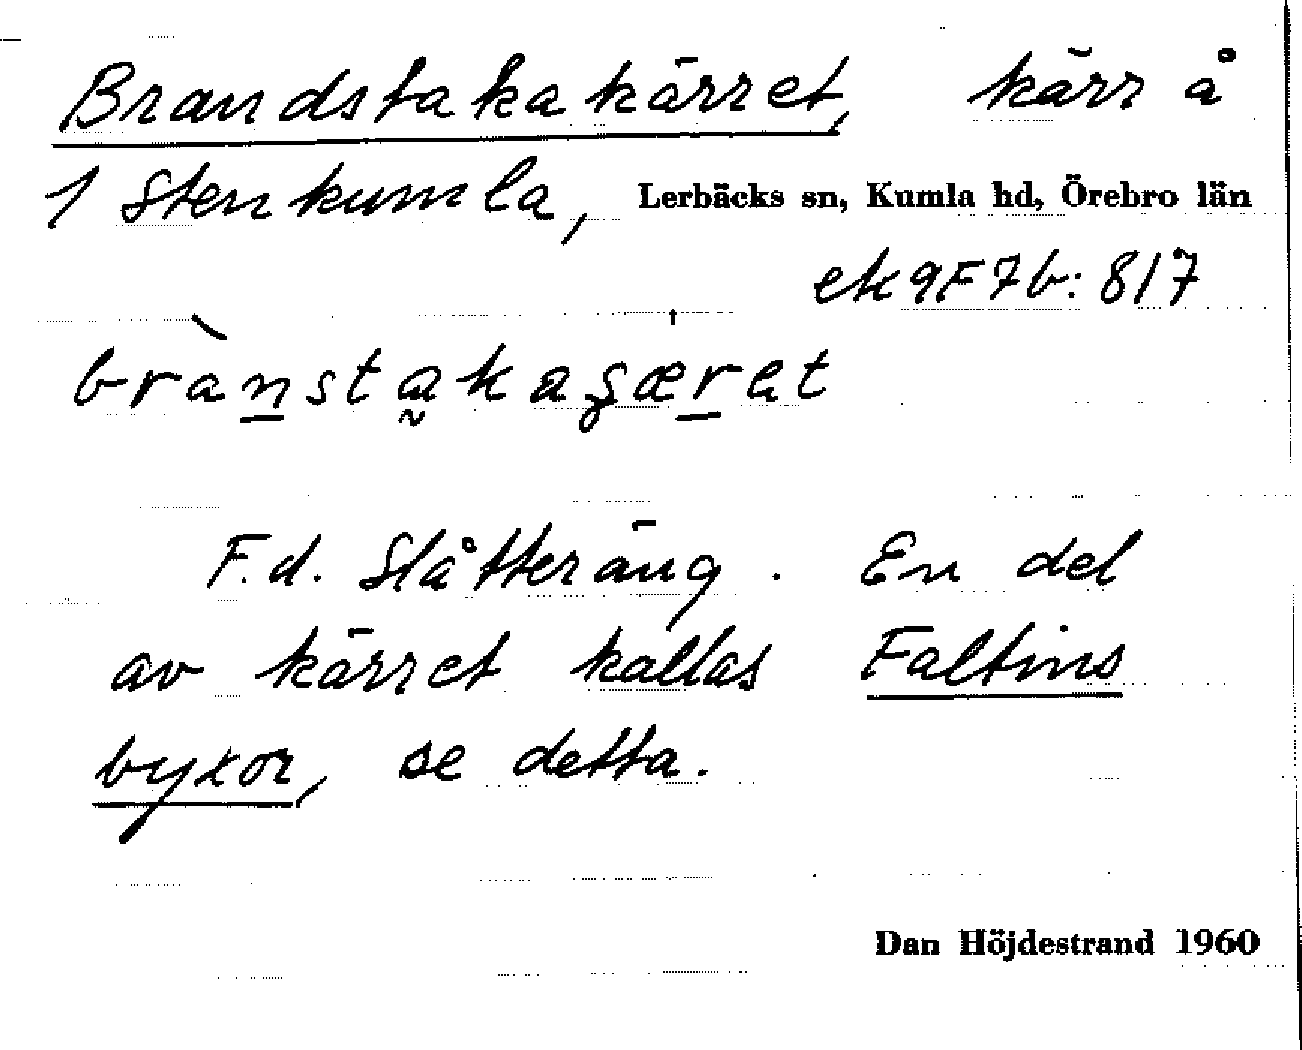 Brandstakakärret, kärr å
1 Stenkumla, Lerbäcks sn, Kumla hd, Örebro län
ek 9F7b: 817
brànstakaʂærət
F.d. Slåtteräng. En del
av kärret kallas Faltins
byxor, se detta.
Dan Höjdestrand 1960